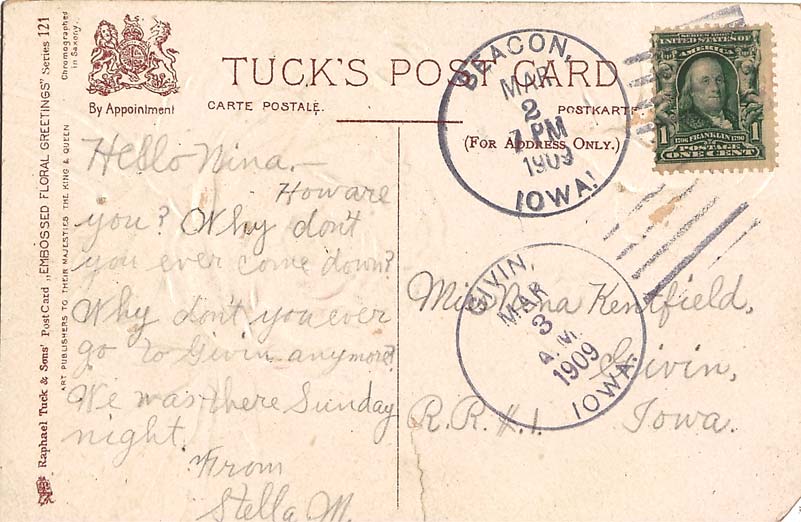 Raphael Tuck & Sons' Post Card „EMBOSSED FLORAL GREETINGS" Series 121
ART PUBLISHERS TO THEIR MAJESTIES THE KING & QUEEN
Chromographed
in Saxony.
By Appointment
TUCK'S POST CARD
CARTE POSTALE.
POSTKARTE
(FOR ADDRESS ONLY.)
BEACON,
MAR
2
7 PM
1909
IOWA.
SERIES 1902
UNITED STATES OF AMERICA
1 FRANKLIN 1
POSTAGE
ONE CENT
Hello Nina.—
How are
you? Why don't
you ever come down?
Why don't you ever
go to Givin anymore?
We was there Sunday
night.
From
Stella M.
GIVIN,
MAR
3
A.M.
1909
IOWA.
Miss Nina Kentfield,
Givin,
R.R.#.1. Iowa.